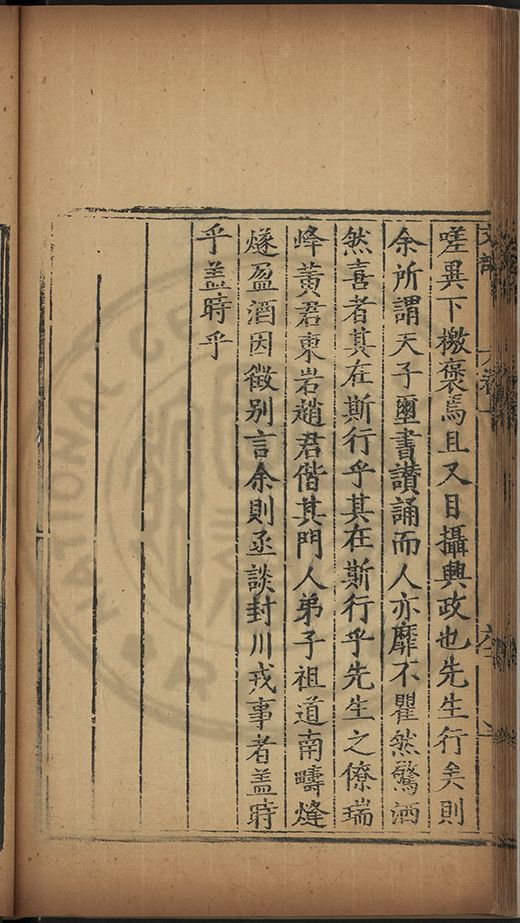 嗟異下檄褒焉且又目攝興政也先生行矣則
余所謂天子璽書讃誦而人亦靡不瞿然驚洒
然喜者其在斯行乎其在斯行乎先生之僚瑞
峰黄君東岩趙君偕其門人弟子祖道南疇烽
燧盈酒因徵别言余則亟談封川戎事者盖時
乎盖時乎